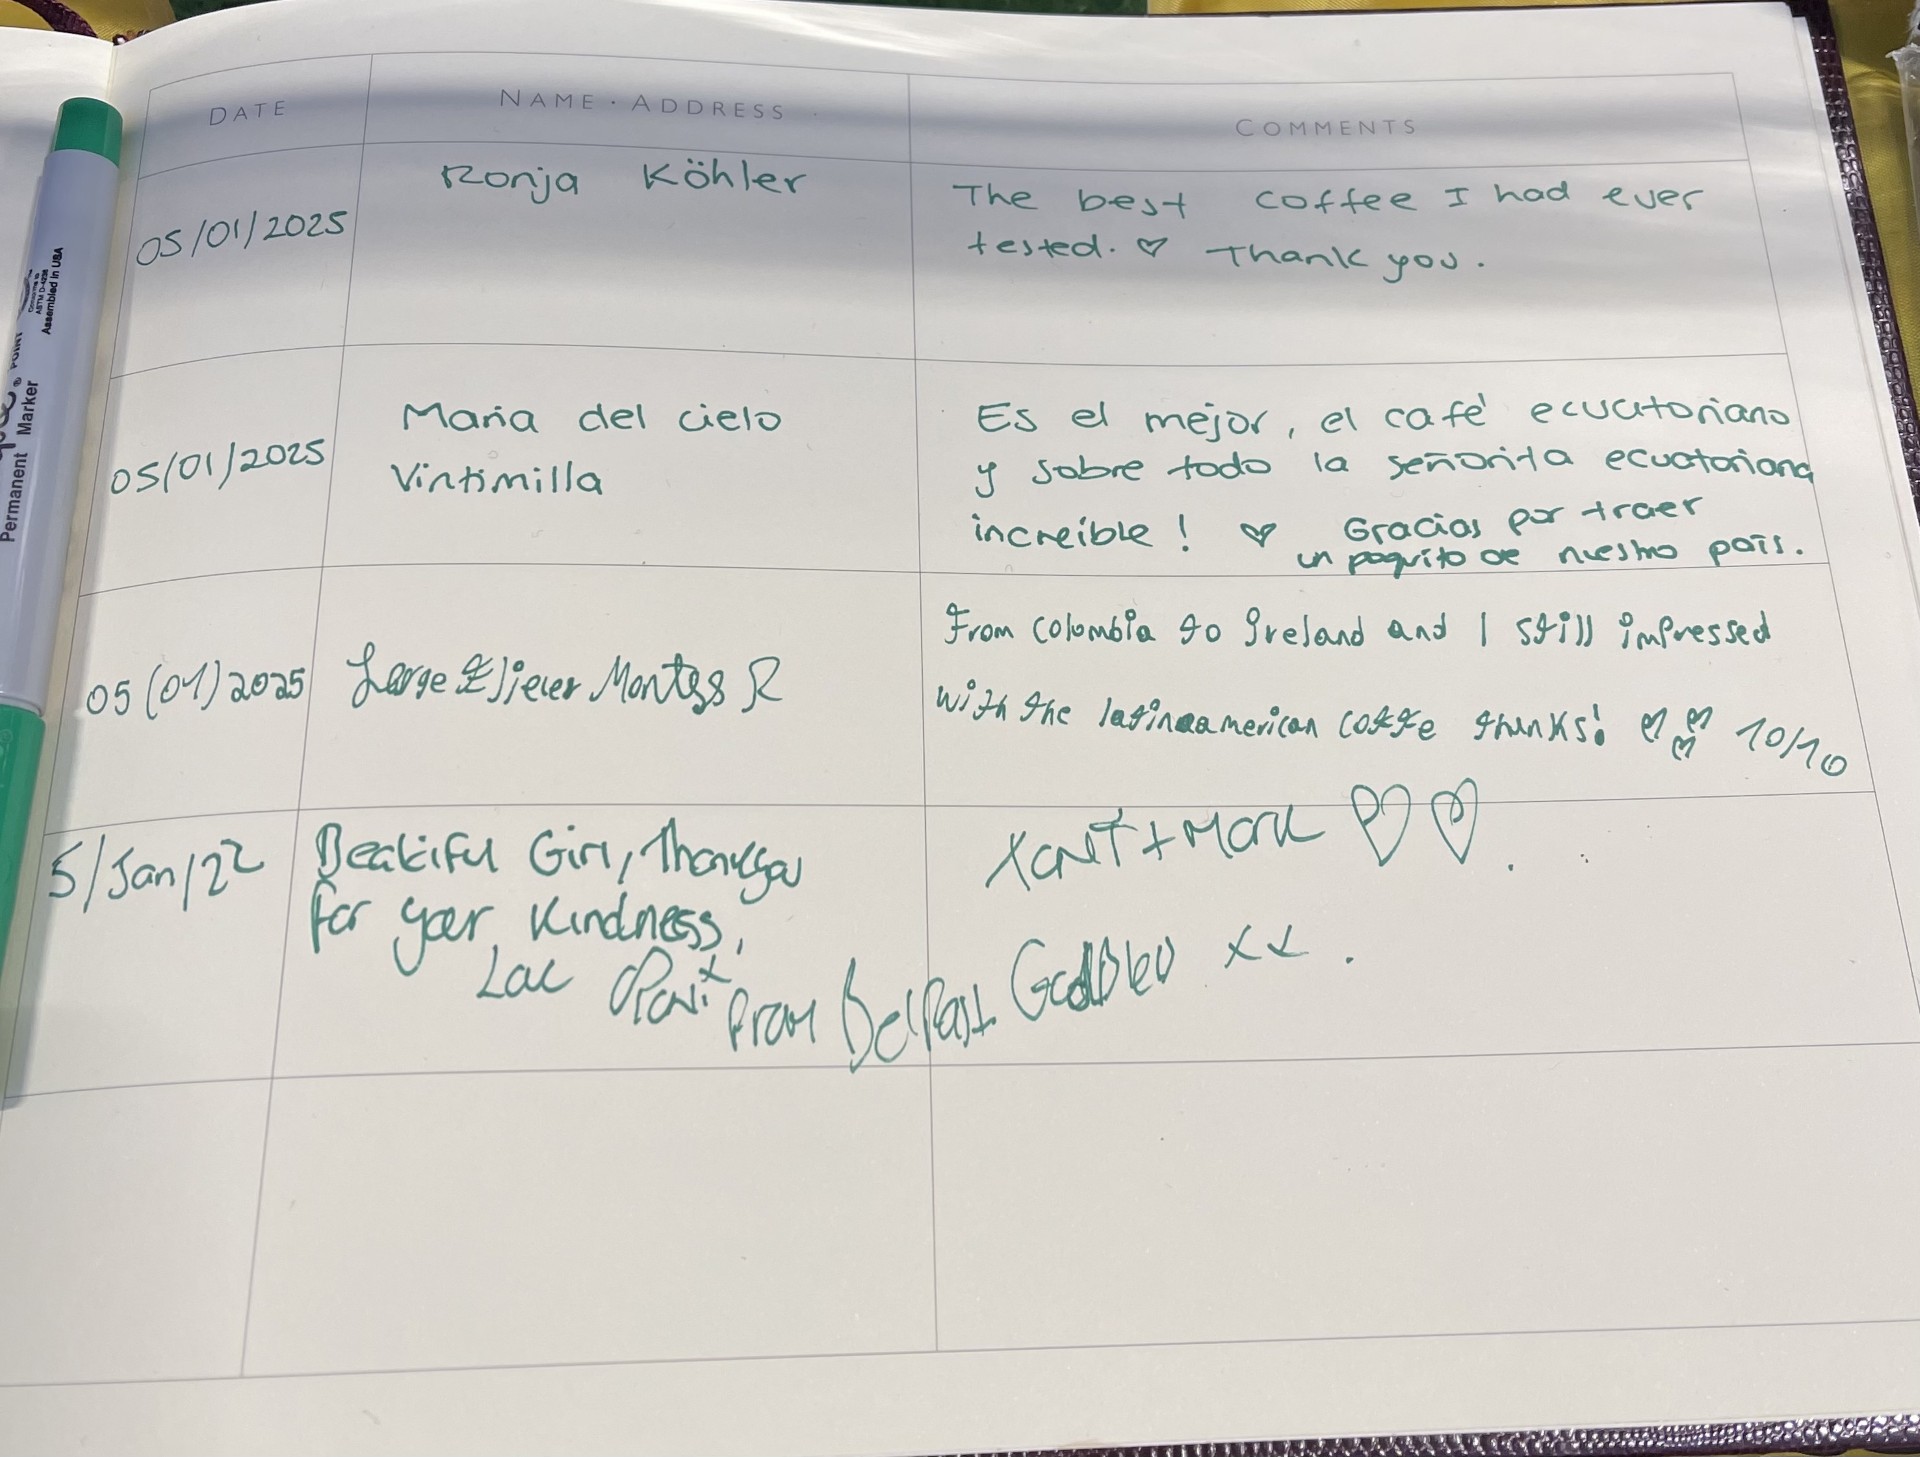 DATE
NAME · ADDRESS
COMMENTS
05/01/2025
Ronja Köhler
The best coffee I had ever
tested. ♡ Thank you.
05/01/2025
Maria del cielo
Vintimilla
Es el mejor, el café ecuatoriano
y sobre todo la señorita ecuatoriana
increíble! ♡ Gracias por traer
un poquito de nuestro país.
05(01)2025
Montes R
From Colombia to Ireland and I still impressed
with the latinoamerican coffe thanks! ♡♡♡ 10/10
5/Jan/22
Beatiful Girl, Thankyou
for your Kindness,
From Belfast
+ Mark ♡♡.
xx.
Permanent Marker
POINT
ASTM D-4236
Assembled in USA